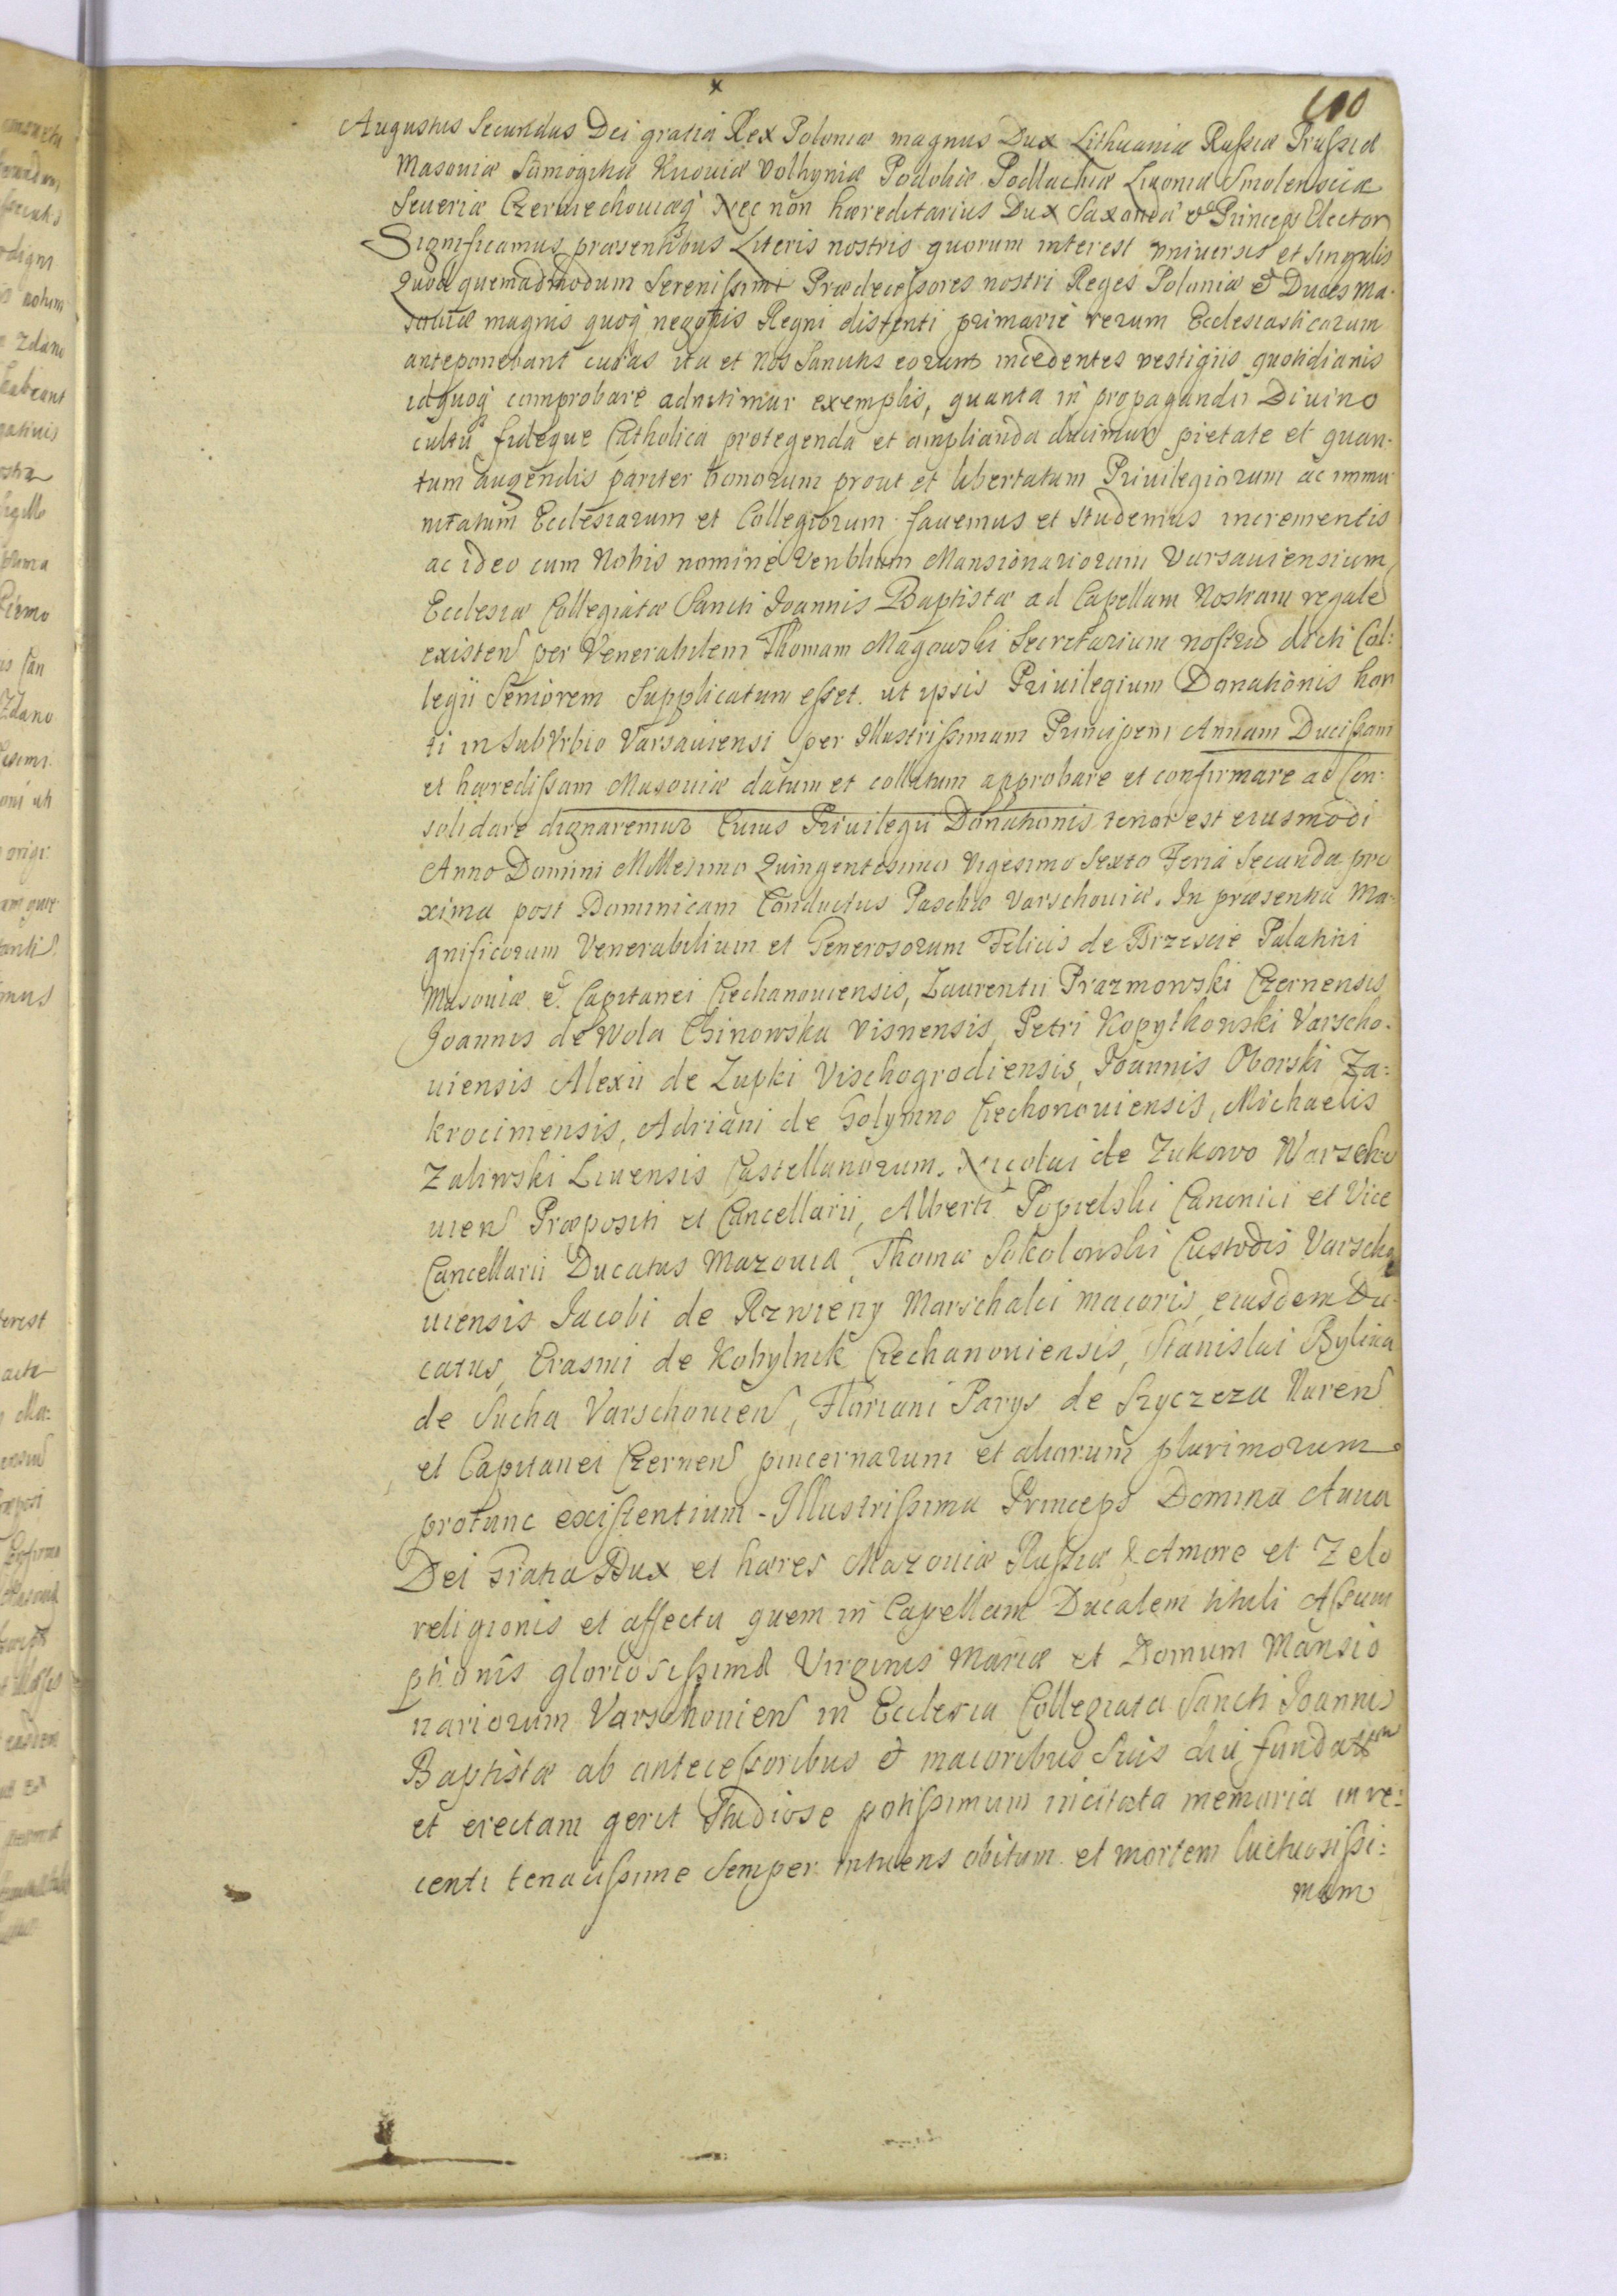 100
x
Augustus Secundus Dei gratia Rex Poloniæ magnus Dux Lithuaniæ Rußiæ Prußiæ
Masoviæ Samogitiæ Kuoviæ Volhyniæ Podoliæ Podlachiæ Livoniæ Smolensciæ
Severiæ Czerniechoviæq́ Nec non hæreditarius Dux Saxoniæ & Princeps Elector
Significamus præsentibus Literis nostris quorum interest vniversis et Singulis
Quod quemadmodum Serenißimi Prædeceßores nostri Reges Poloniæ & Duces Ma-
soviæ magnis quoq́ negotÿs Regni distenti primarie rerum Ecclesiasticarum
anteponebant curas ita et nos Sanctis eorum incedentes vestigiis quotidianis
id quoq́ comprobare adnitimur exemplis, quanta in propagandu Divino
cultu fideque Catholica protegenda et amplianda ducimur pietate et quan-
tum augendis pariter bonorum prout et libertatum Privilegiorum ac immu
nitatum Ecclesiarum et Collegiorum favemus et studemus incrementis
ac ideo cum Nobis nomine Venblium Mansionariorum Varsaviensium,
Ecclesiæ Collegiatæ Sancti Joannis Baptistæ ad Capellam Nostram regale
existen per Venerabilem Thomam Magowski Secretarium nostrũ dicti Col:
legÿ Seniorem Supplicatum eßet. ut ypsis Privilegium Donationis hor
ti in SubVrbio Varsaviensi per Illustrißimam Principem Annam Ducißam
et hæredißam Masoviæ datum et collatum approbare et confirmare ac Con-
solidare dignaremur Cuius Privilegii Donationis tenor est eiusmodi
Anno Domini Millesimo Quingentesimo Vigesimo Sexto Feria Secunda pro
xima post Dominicam Conductus Paschæ Varschoviæ. In præsentia Ma-
gnificorum Venerabilium et Generosorum Felicis de Brzescie Palatini
Masoviæ & Capitanei Ciechanoviensis, Laurentii Prazmowski Czernensis
Joannis de Wola Chinowska Visnensis, Petri Kopythowski Varscho-
viensis Alexii de Lupki Vischogrodiensis, Joannis Oborski Za:
krocimensis, Adriani de Golymno Ciechonoviensis, Michaelis
Zaliwski Livensis Castellanorum. Nicolai de Zukowo Warscho
vien Præpositi et Cancellarii, Alberti Popielski Canonici et Vice
Cancellarii Ducatus Mazoviæ, Thomæ Sokolowski Custodis Varscho
viensis Jacobi de Rzwieny Marschalci maioris eiusdem Du-
catus, Erasmi de Kobylnik Ciechanoviensis, Stanislai Bylina
de Sucha Varschovien, Floriani Parys de Szyczeza Nuren
et Capitanei Czernen pincernarum et aliorum plurimorum
protunc existentium - Illustrißima Princeps Domina Anna
Dei Gratia Dux et hæres Mazoviæ Rußiæ & Amore et Zelo
religionis et affectu quem in Capellam Ducalem tituli Aßum
ptionis glorioseßimæ Virginis Mariæ et Domum Mansio
nariorum Varschovien in Ecclesia Collegiata Sancti Joannis
Baptistæ ab anteceßoribus & maioribus Suis diu fundatam
et erectam gerit Studiose potißimum incitata memoria in re:
centi tenacißime Semper intuens obitum et mortem luctuosißi:
mam